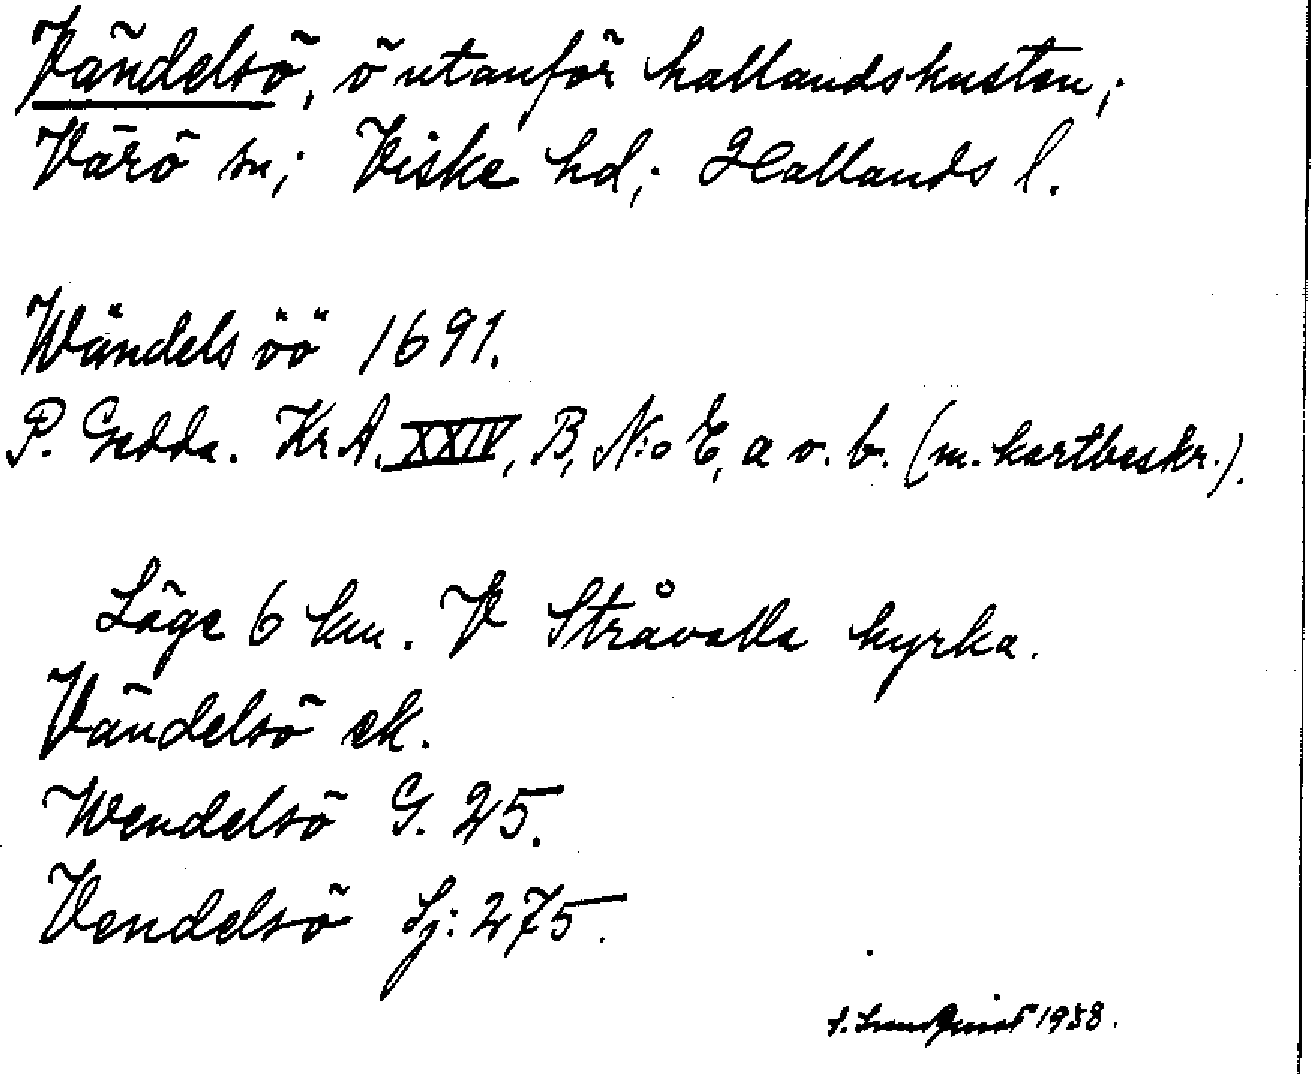 Vändelsö, ö utanför hallandskusten;
Värö sn; Viske hd; Hallands l.
Wändels öö 1691.
P. Gedda. Kr A. XXIV, B, N:o E, a o. b. (m. kartbeskr.).
Läge 6 km. V Stråvalla kyrka.
Vändelsö ek.
Wendelsö G. 25.
Vendelsö Sj: 275.
1938.